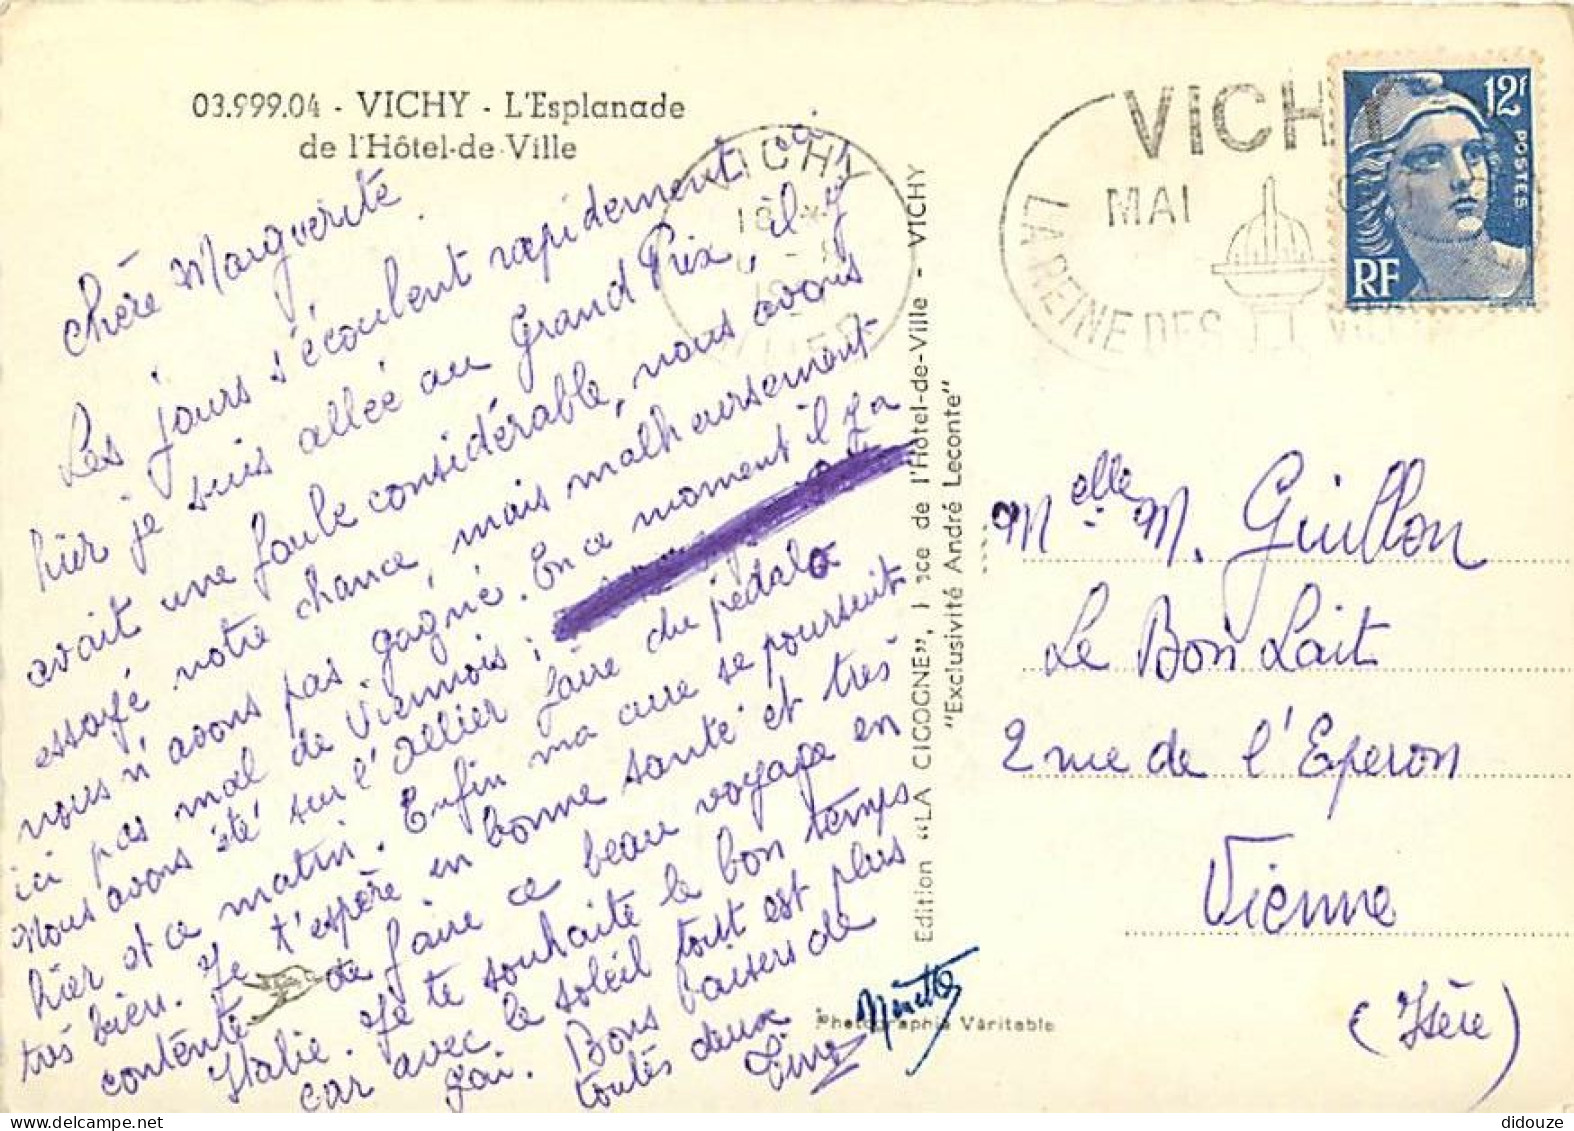 03.999.04 - VICHY - L'Esplanade
de l'Hôtel-de-Ville
Chère Marguerite
Les jours s'écoulent rapidement ici,
hier je suis allée au Grand Prix, il y
avait une foule considérable, nous avons
essayé notre chance, mais malheureusement
nous n'avons pas gagné. En ce moment il y a
ici pas mal de Viennois;
Nous avons été sur l'Allier faire du pédalo
hier et ce matin. Enfin ma cure se poursuit
très bien. Je t'espère en bonne santé et très
contente de faire ce beau voyage en
Italie. Je te souhaite le bon temps
car avec le soleil tout est plus
gai. Bons baisers de
toutes deux
Ginette
VICHY
18 *
ALLIER
Edition "LA CIGOGNE", 1 place de l'Hôtel-de-Ville - VICHY
"Exclusivité André Leconte"
Photographie Véritable
VICHY
MAI
LA REINE DES
12F
POSTES
RF
Melle M. Guillon
Le Bon Lait
2 rue de l'Eperon
Vienne
(Isère)
didouze